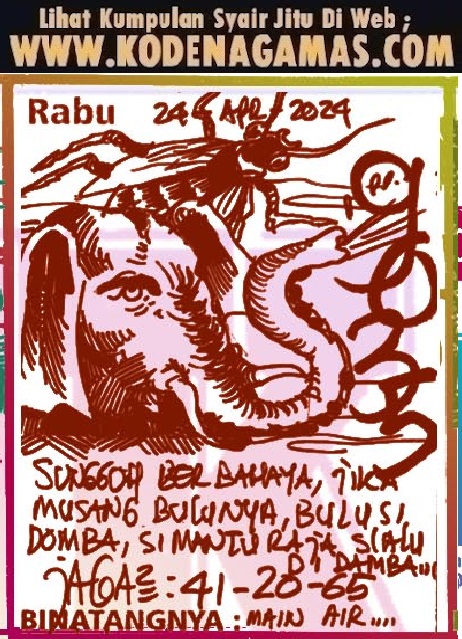 Lihat Kumpulan Syair Jitu Di Web ;
WWW.KODENAGAMAS.COM
Rabu 24 APR 2024
SUNGGOH BERBAHAYA, JIKA
MUSANG BULUNYA, BULU SI
DOMBA, SI MANTU RAJA, SLALU
DI DAMBA...
JAGA2 : 41-20-65
BINATANGNYA : MAIN AIR ....